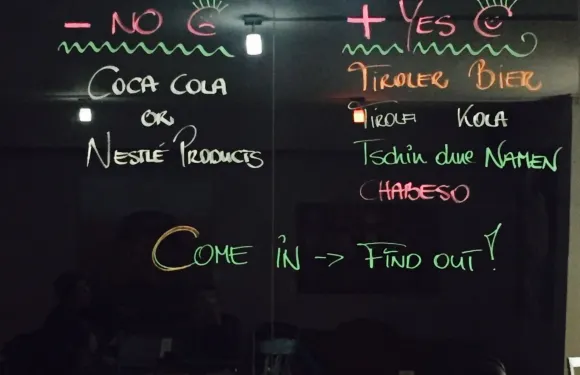 - NO
COCA COLA
OR
NESTLÉ PRODUCTS
+ YES
TIROLER BIER
TIROLA KOLA
Tschin ohne NAMEN
CHABESO
COME IN -> FIND OUT!